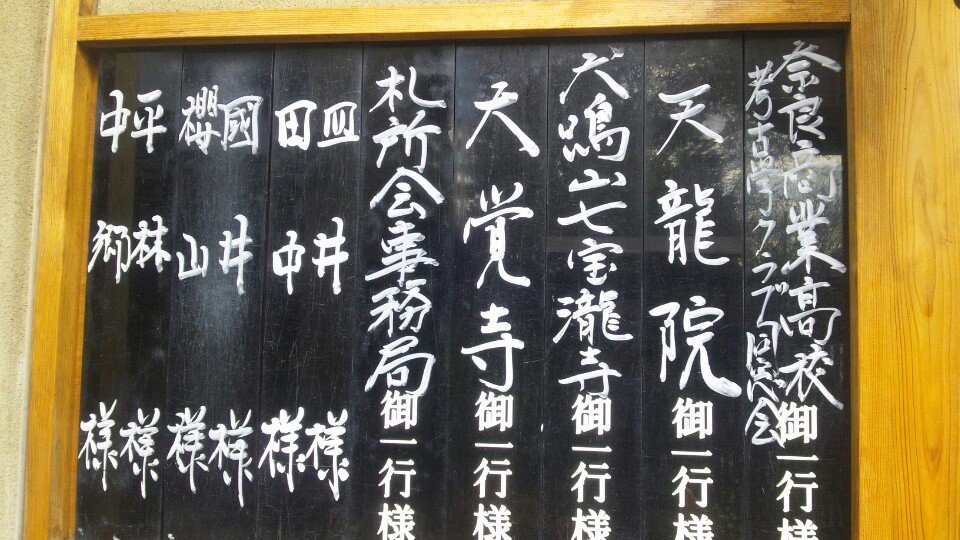 奈良商業高校
考古学クラブ同窓会
御一行様
天龍院御一行様
犬鳴山七宝瀧寺御一行様
天覚寺御一行様
札所会事務局御一行様
皿井様
田中様
國井様
櫻山様
平林様
中郷様